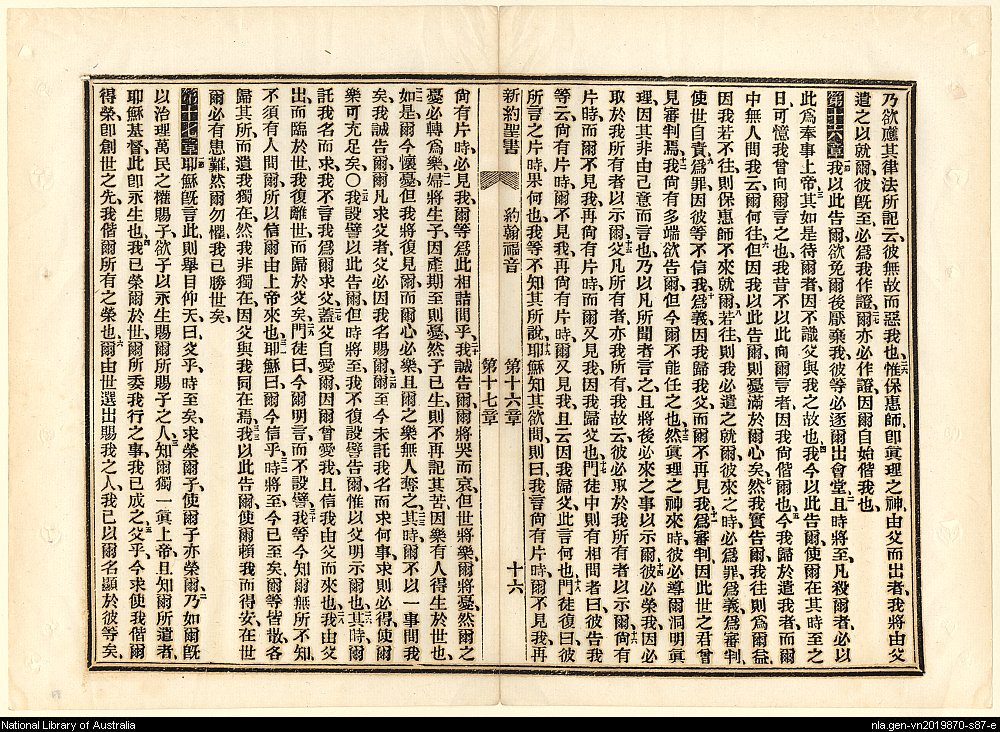 乃欲應其律法所記云、彼無故而惡我也、惟保惠師、卽眞理之神、由父而出者、我將由父
遣之以就爾、彼旣至、必爲我作證、爾亦必作證、因爾自始偕我也、
第十六章 我以此告爾、欲免爾後厭棄我、彼等必逐爾出會堂、且時將至、凡殺爾者、必以
此爲奉事上帝、其如是待爾者、因不識父與我之故也、我今以此告爾、使爾在其時至之
日、可憶我曾向爾言之也、我昔不以此向爾言者、因我尙偕爾也、今我歸於遣我者、而爾
中無人問我云、爾何往、但因我以此告爾、則憂滿於爾心矣、然我實告爾、我往則爲爾益、
因我若不往、則保惠師不來就爾、若往、則我必遣之就爾、彼來之時、必爲罪、爲義、爲審判、
使世自責、爲罪、因彼等不信我、爲義、因我歸我父、而爾不再見我、爲審判、因此世之君曾
見審判焉、我尙有多端欲告爾、但今爾不能任之也、然眞理之神來時、彼必導爾洞明眞
理、因其非由己意而言也、乃以凡所聞者言之、且將後必來之事以示爾、彼必榮我、因必
取於我所有者以示爾、父凡所有者、亦我所有、故云、彼必取於我所有者以示爾、尙有
片時、而爾不見我、再尙有片時、而爾又見我、因我歸父也、門徒中則有相問者曰、彼告我
等云、尙有片時、爾不見我、再尙有片時、爾又見我、且云因我歸父、此言何也、門徒復曰、彼
所言之片時、果何也、我等不知其所說、耶穌知其欲問、則曰、我言尙有片時、爾不見我、再
新約聖書 約翰福音 第十六章 第十七章 十六
尙有片時、必見我、爾等爲此相詰問乎、我誠告爾、爾將哭而哀、但世將樂、爾將憂、然爾之
憂必轉爲樂、婦將生子、因產期至則憂、然子已生、則不再記其苦、因樂有人得生於世也、
如是爾今懷憂、但我將復見爾、而爾心必樂、且爾之樂、無人奪之、其時爾不以一事問我
矣、我誠告爾、凡求父者、父必因我名賜爾、爾至今未託我名而求何事、求則必得、使爾
樂可充足矣、〇我設譬以此告爾、但時將至、我不復設譬告爾、惟以父明示爾也、其時爾
託我名而求、我不言我爲爾求父、蓋父自愛爾、因爾曾愛我、且信我由父而來也、我由父
出而臨於世、我復離世、而歸於父矣、門徒曰、今爾明言、而不設譬、我等今知爾無所不知、
不須有人問爾、所以信爾由上帝來也、耶穌曰、爾今信乎、時將至、今已至矣、爾等皆散、各
歸其所、而遺我獨在、然我非獨在、因父與我同在焉、我以此告爾、使爾賴我而得安、在世
爾必有患難、然爾勿懼、我已勝世矣、
第十七章 耶穌旣言此、則舉目仰天曰、父乎、時至矣、求榮爾子、使爾子亦榮爾、乃如爾旣
以治理萬民之權賜子、欲子以永生賜爾所賜子之人、知爾獨一眞上帝、且知爾所遣者、
耶穌基督、此卽永生也、我已榮爾於世、爾所委我行之事、我已成之、父乎、今求使我偕爾
得榮、卽創世之先、我偕爾所有之榮也、爾由世選出賜我之人、我已以爾名顯於彼等矣、
National Library of Australia
nla.gen-vn2019870-s87-e